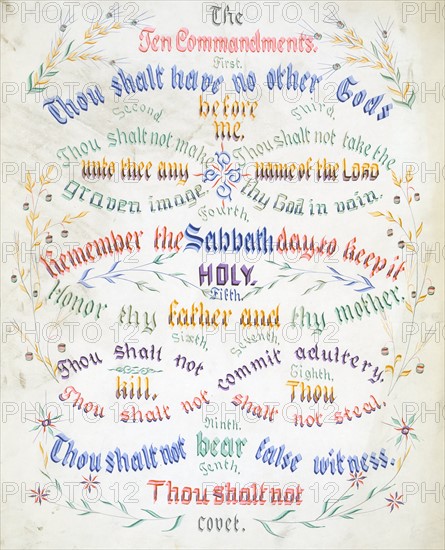 The
Ten Commandments.
First.
Thou shalt have no other Gods
before
me.
Second.
Third.
Thou shalt not make
Thou shalt not take the
unto thee any
name of the LORD
graven image.
thy God in vain.
Fourth.
Remember the Sabbath day, to keep it
HOLY.
Fifth.
Honor thy father and thy mother.
Sixth.
Seventh.
Thou shall not
commit adultery.
Eighth.
kill.
Thou
Thou shalt not
shalt not steal.
Ninth.
Thou shalt not bear false witness.
Tenth.
Thou shalt not
covet.
PHOTO12